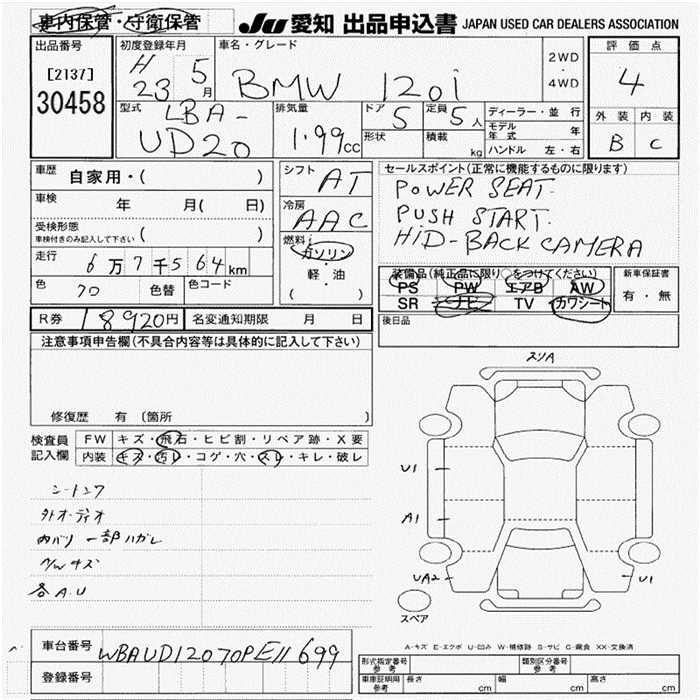 車内保管・守衛保管
JU 愛知 出品申込書 JAPAN USED CAR DEALERS ASSOCIATION
出品番号
[2137]
30458
初度登録年月
H 23 5月
車名・グレード
BMW 120i
2WD
・
4WD
評価点
4
外装 内装
B C
型式
LBA-
UD20
排気量
1.99cc
ドア 5
定員 5人
形状
積載 kg
ディーラー・並行
モデル年式 年
ハンドル 左・右
車歴 自家用・( )
車検 年 月( 日)
受検形態
車検付きのみ記入して下さい ( )
走行 6万7千564km
色 色替 色コード
R券 18920円 名変通知期限 月 日
シフト AT
冷房 AAC
燃料
ガソリン
・
軽・油
( )
セールスポイント(正常に機能するものに限ります)
POWER SEAT.
PUSH START.
HID-BACK CAMERA
装備品(純正品に限り○をつけてください)
PS PW エアB AW
SR ナビ TV カワシート
新車保証書
有・無
後日品
注意事項申告欄(不具合内容等は具体的に記入して下さい)
修復歴 有(箇所
検査員記入欄
FW キズ・飛石・ヒビ割・リペア跡・X要
内装 キズ・汚レ・コゲ・穴・スレ・キレ・破レ
外オーディオ
内バリ 一部ハガレ
A/W キズ
各A.U
スリA
U1
A1
UA2
U1
スペア
A-キズ E-エクボ U-凹み W-補修跡 S-サビ C-腐食 XX-交換済
車台番号 WBAUD12070PE11699
登録番号
形式指定番号 参考
類別区分番号 参考
車庫証明用 参考 長さ cm 幅 cm 高さ cm